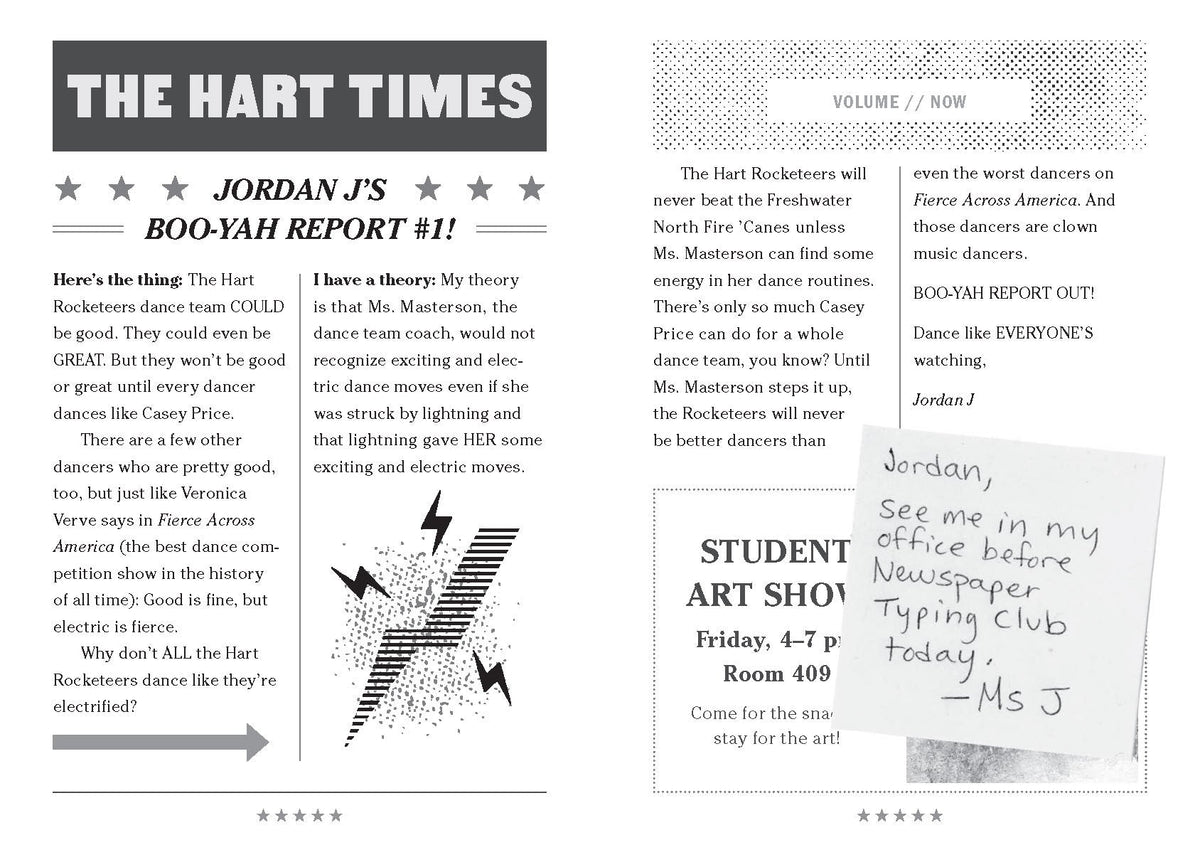 THE HART TIMES
JORDAN J’S
BOO-YAH REPORT #1!
Here’s the thing: The Hart
Rocketeers dance team COULD
be good. They could even be
GREAT. But they won’t be good
or great until every dancer
dances like Casey Price.
There are a few other
dancers who are pretty good,
too, but just like Veronica
Verve says in Fierce Across
America (the best dance com-
petition show in the history
of all time): Good is fine, but
electric is fierce.
Why don’t ALL the Hart
Rocketeers dance like they’re
electrified?
I have a theory: My theory
is that Ms. Masterson, the
dance team coach, would not
recognize exciting and elec-
tric dance moves even if she
was struck by lightning and
that lightning gave HER some
exciting and electric moves.
VOLUME // NOW
The Hart Rocketeers will
never beat the Freshwater
North Fire ’Canes unless
Ms. Masterson can find some
energy in her dance routines.
There’s only so much Casey
Price can do for a whole
dance team, you know? Until
Ms. Masterson steps it up,
the Rocketeers will never
be better dancers than
even the worst dancers on
Fierce Across America. And
those dancers are clown
music dancers.
BOO-YAH REPORT OUT!
Dance like EVERYONE’S
watching,
Jordan J
STUDENT
ART SHOW
Friday, 4–7 pm
Room 409
Come for the snac
stay for the art!
Jordan,
see me in my
office before
Newspaper
Typing Club
today.
—Ms J